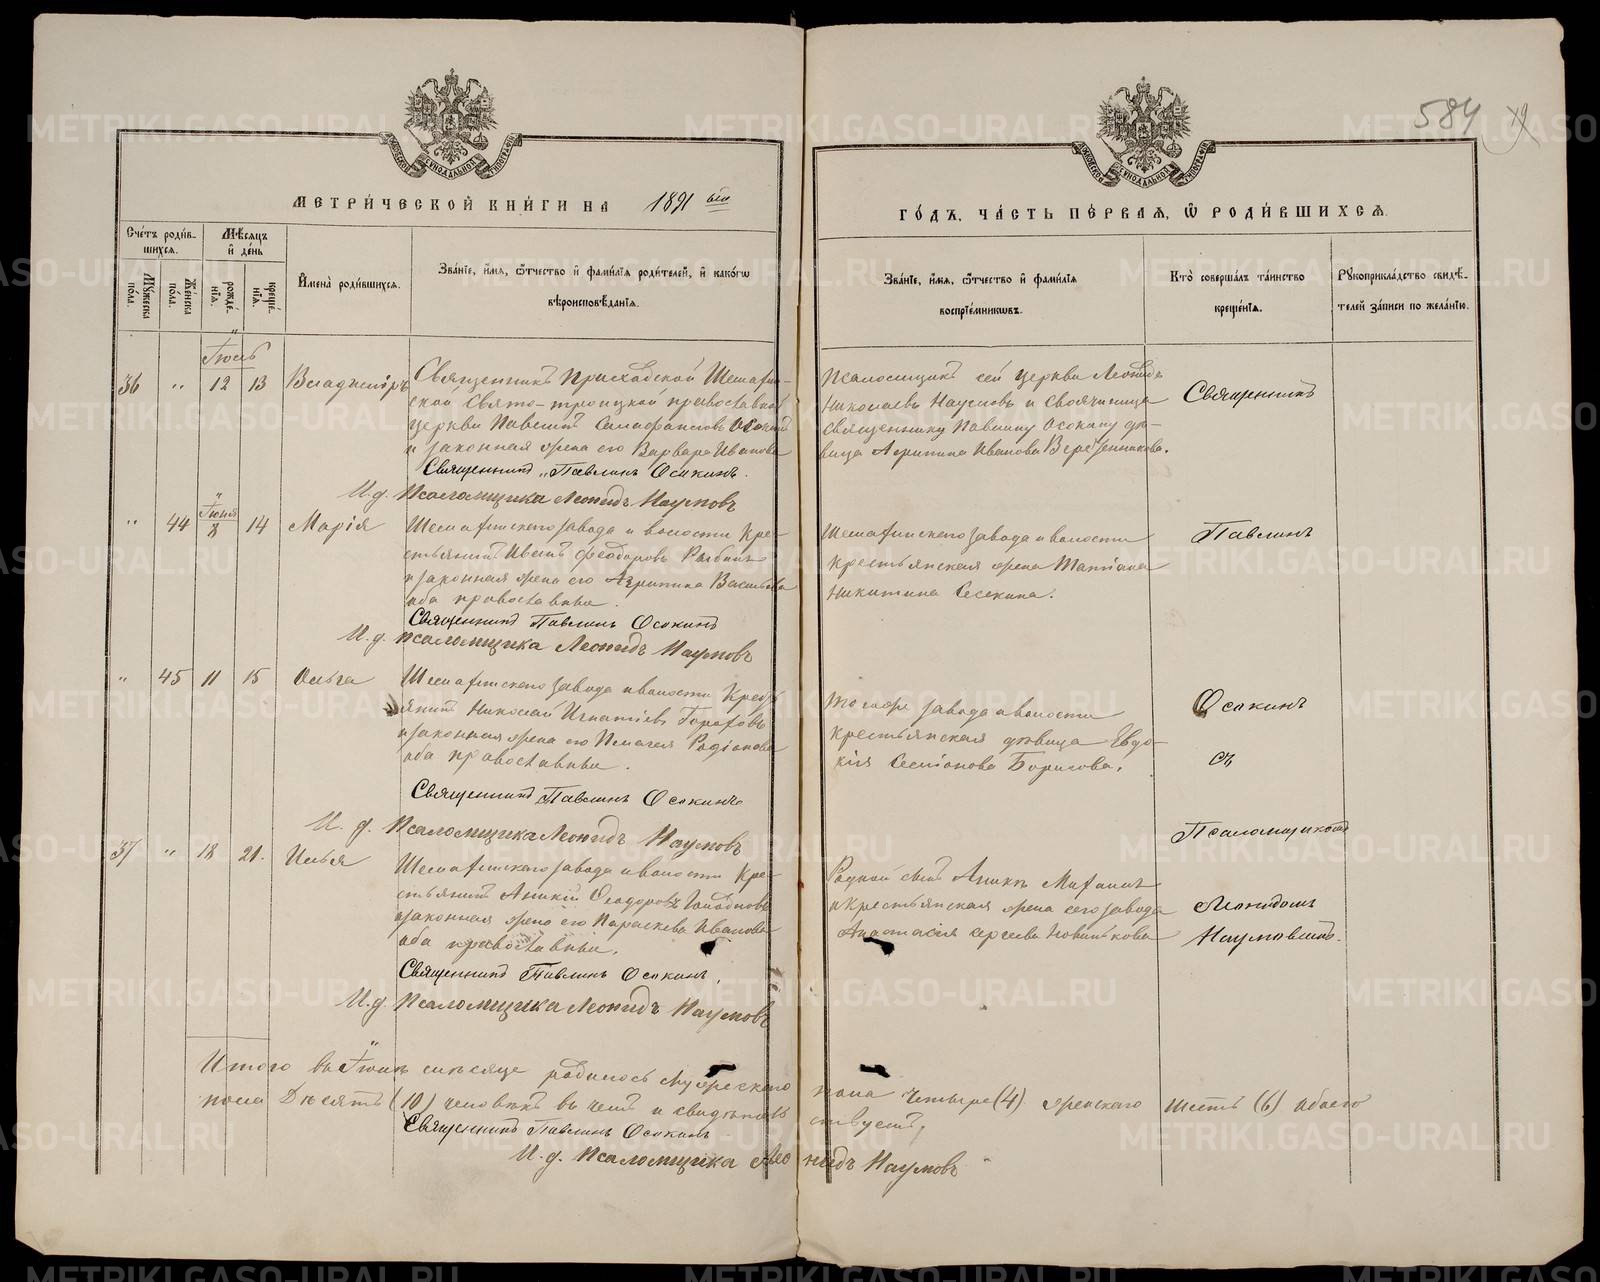 584
МЕТРИ́ЧЕСКОЙ КНИ́ГИ НА 1891 ый
ГО́ДЪ, ЧА́СТЬ ПЕ́РВАЯ, Ѿ РОДИ́ВШИХСЯ.
Сче́тъ роди́в-
шихся.
Мѣ́сяцъ
и҆ де́нь
Мꙋ́жеска
по́ла.
Же́нска
по́ла.
рожде́-
нїѧ.
креще́-
нїѧ.
И҆мена̀ роди́вшихся.
Зва́нїе, и҆́мѧ, ѻ҆́тчество и҆ фами́лїѧ роди́телей, и҆ како́гѡ
вѣроисповѣ́данїѧ.
Зва́нїе, и҆́мѧ, ѻ҆́тчество и҆ фами́лїѧ
воспрїе́мникѡвъ.
Кто̀ соверша́лъ та́инство
креще́нїѧ.
Рꙋкоприкла́дство свидѣ́-
телей за́писи по жела́нїю.
Іюль
36 " 12 13 Владиміръ
Священникъ Приходской Шемахин-
ской Свято-троицкой православной
церкви Павлинъ Осокинъ
и законная жена его Варвара Иванова
Священникъ Павлинъ Осокинъ.
И. д. Псаломщика Леонидъ Наумовъ
Псаломщикъ сей церкви Леонидъ
Николаевъ Наумовъ и своячиница
священнику Павлину Осокину дѣ-
вица Агрипина Иванова
Священникъ
" 44 Іюня 8 14 Марія
Шемахинскаго завода и волости Кре-
стьянинъ Иванъ Феодоровъ Рыбинъ
и законная жена его Агрипина Васильева
оба православные.
Священникъ Павлинъ Осокинъ
И. д. псаломщика Леонидъ Наумовъ
Шемахинскаго завода и волости
крестьянская жена Татіана
Никитина Сесекина.
Павлинъ
" 45 11 15 Ольга
Шемахинскаго завода и волости Крест
янинъ Николай Игнатіевъ Гороховъ
и законная жена его Пелагея Родіонова
оба православные.
Священникъ Павлинъ Осокинъ
И. д. Псаломщика Леонидъ Наумовъ
Тогоже завода и волости
крестьянская дѣвица Евдо-
кія Семіонова Борисова.
Осокинъ
съ
Псаломщикомъ
37 " 18 21. Илья
Шемахинскаго завода и волости Кре-
стьянинъ Аникій Феодоровъ
и законная жена его Параскева Иванова
оба православные.
Священникъ Павлинъ Осокинъ.
И. д. Псаломщика Леонидъ Наумовъ
Родной сынъ
и Крестьянская жена сего завода
Анастасія Сергѣева Новикова
Леонидомъ
Наумовымъ.
Итого въ Іюлѣ мѣсяце родилось Мужескаго пола Четыре (4) женскаго шесть (6) обоего
пола Десять (10) человѣкъ въ чемъ и свидѣтельствуетъ.
Священникъ Павлинъ Осокинъ
И. д. Псаломщика Леонидъ Наумовъ